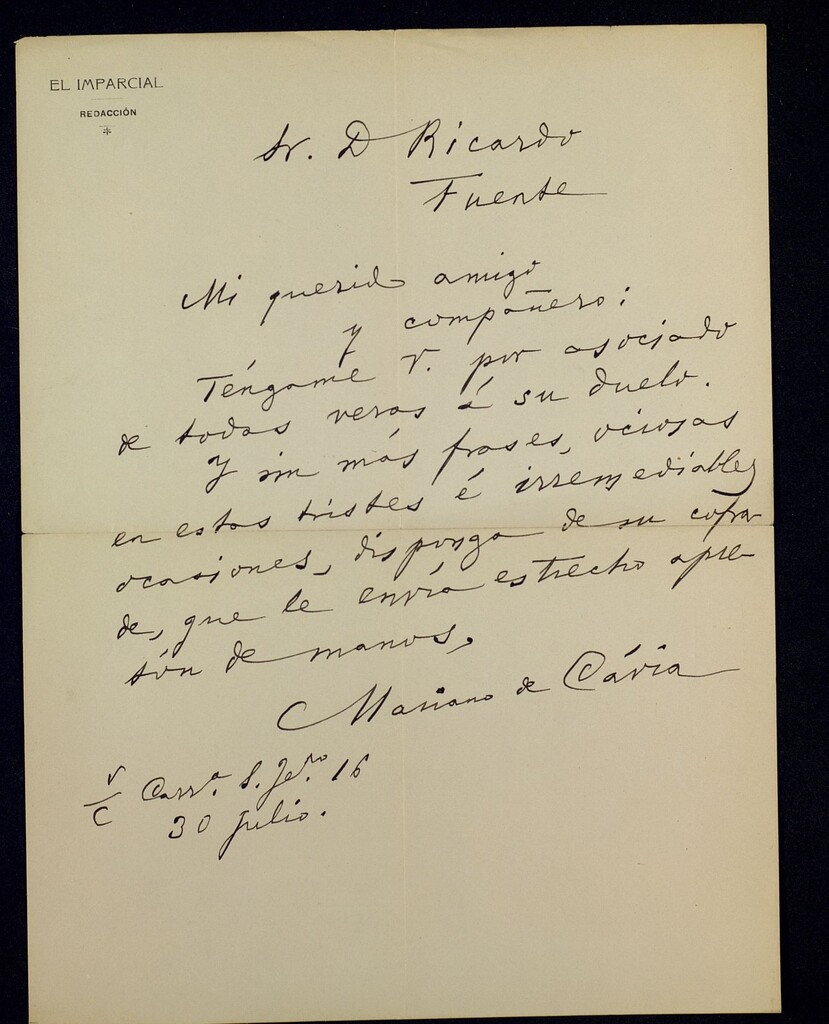 EL IMPARCIAL
REDACCIÓN
Sr. D Ricardo
Fuente
Mi querido amigo
y compañero:
Téngame V. por asociado
de todas veras á su duelo.
Y sin más frases, ociosas
en estas tristes é irremediables
ocasiones, disponga de su cofra-
de, que le envía estrecho apre-
tón de manos,
Mariano de Cávia
V
C Carr.ª S. Je.mo 16
30 julio.